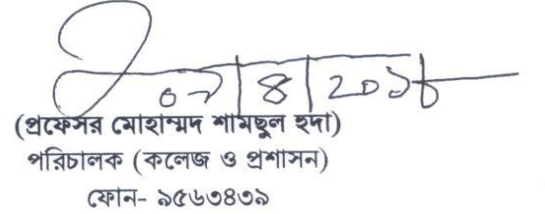 (প্রফেসর মোহাম্মদ শামছুল হুদা)
পরিচালক (কলেজ ও প্রশাসন)
ফোন- ৯৫৬৩৪৩৯